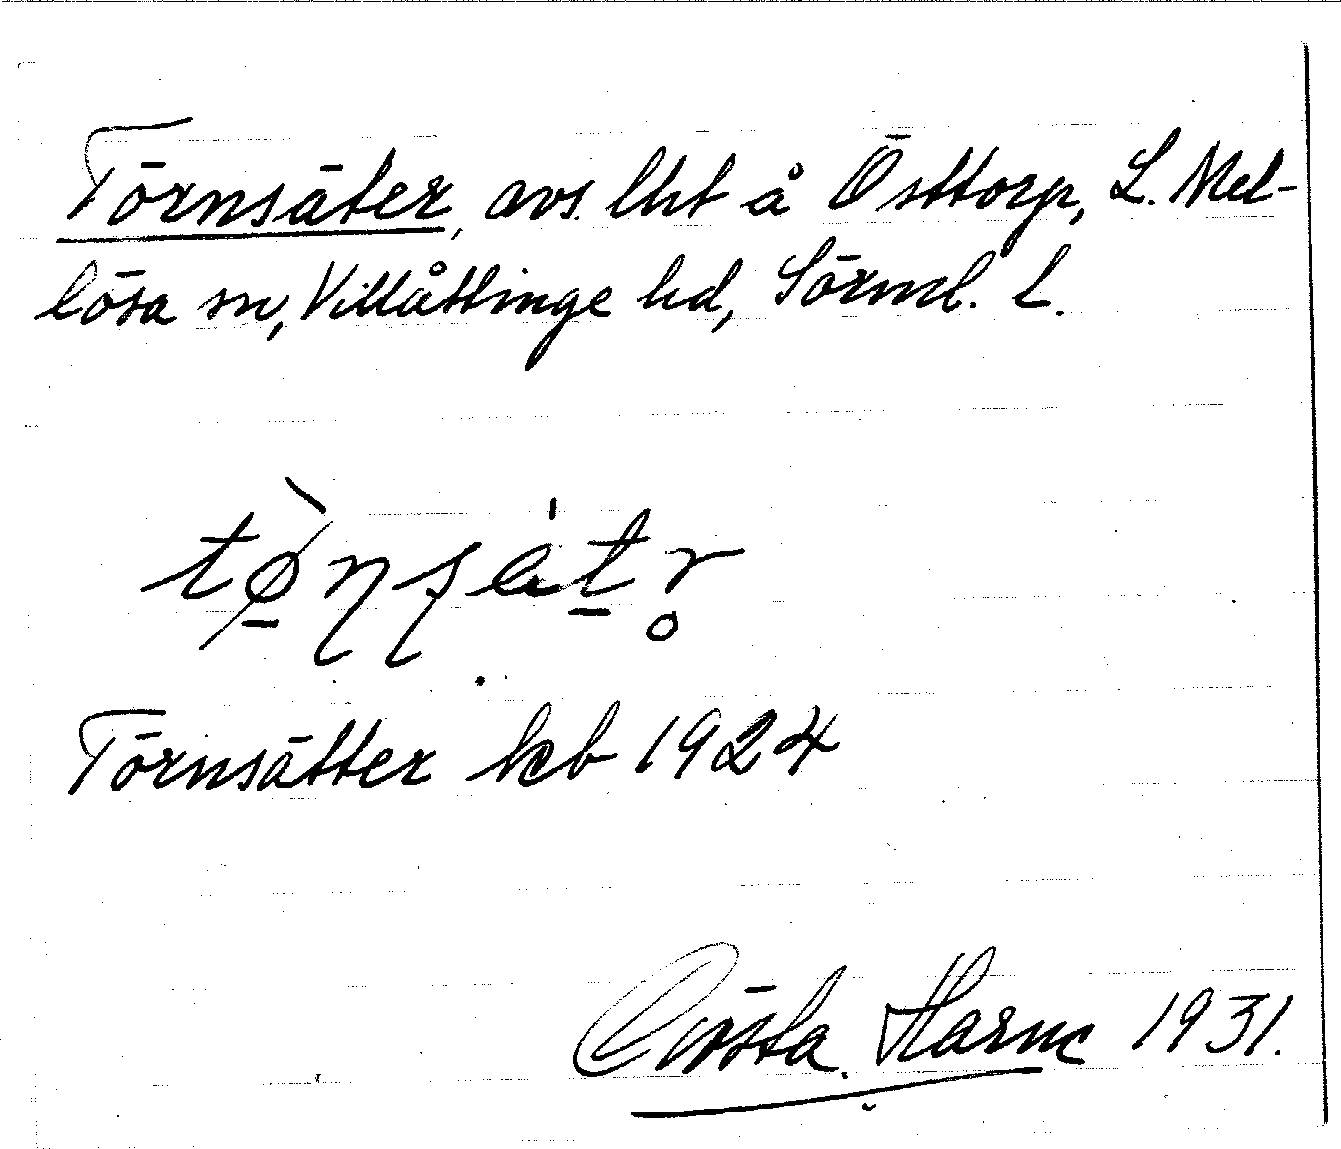 Törnsäter, avs. lht å Östtorp, L. Mel-
lösa sn, Villåttinge hd, Sörml. l.
tø̀ɳʂétr̥
Törnsätter kb 1924
Gösta Harne 1931.